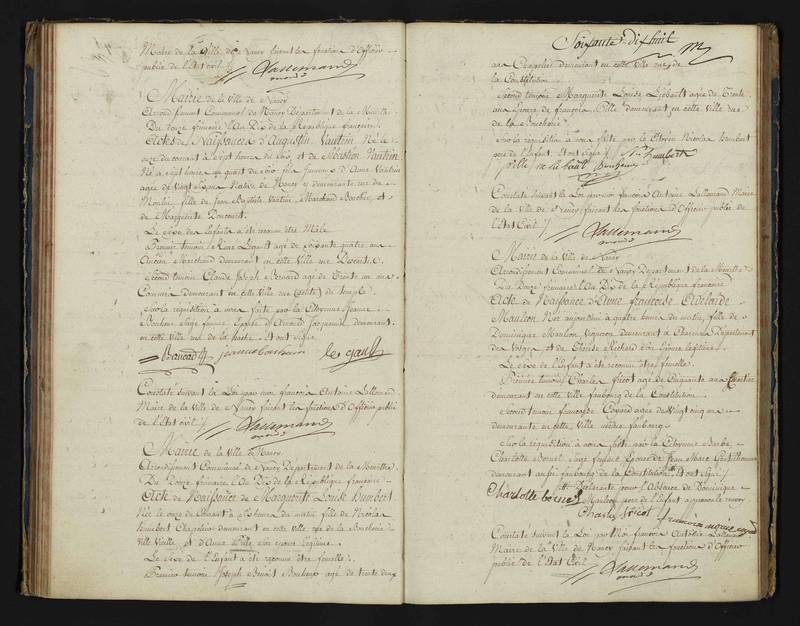 Maire de la Ville de Nancy faisant les fonctions d'Officier
public de l'Etat civil
Lallemand
Mairie de la Ville de Nancy
Arrondissement Communal de Nancy Département de la Meurthe
Du douze frimaire l'An Dix de la République française
Acte de Naissances d'Augustin Vautrin Né le
onze du courant à sept heures du soir et de Sébastien Vautrin
Né à sept heures un quart du soir fils jumeaux d'Anne Vautrin
agée de vingt ans Native de Nancy y demeurante rue du
Moulin fille de Jean Baptiste Vautrin Marchand Boucher et
de Marguerite
Le sexe des Enfants a été reconnu être Mâle
Premier témoin agé de soixante quatre ans
Ancien Marchand demeurant en cette Ville rue
Second témoin Claude Joseph Bernard agé de trente un ans
demeurant en cette Ville rue
Sur la réquisition à nous faite par la Citoyenne Jeanne
Sage femme Epouse d'Arnould Jacquemin demeurant
en cette Ville rue de la
Constaté suivant la Loi par moi françois Antoine Lallemand
Maire de la Ville de Nancy faisant les fonctions d'Officier public
de l'Etat civil
Lallemand
Mairie de la Ville de Nancy
Arrondissement Communal de Nancy Département de la Meurthe
Du Douze frimaire l'An Dix de la République française
Acte de Naissance de Marguerite Louise Humbert
Née le onze du Courant à six heures du matin fille de Nicolas
Humbert Chapelier demeurant en cette Ville rue de la Boucherie
Ville Vieille et d'Anne Pille son epouse légitime
Le sexe de l'Enfant a été reconnu être femelle
Premier témoin Joseph Benoit Boulanger agé de trente deux
Soixante-dix huit
ans Chapelier demeurant en cette Ville rue de
la Constitution
Second témoin Marguerite Louise Liébault agée de trente
ans Epouse de françois Pille demeurant en cette Ville rue
de la Boucherie
Sur la réquisition à nous faite par le Citoyen Nicolas Humbert
pere de l'Enfant Et ont signé
N. Humbert
Constaté suivant la Loi par moi françois Antoine Lallemand Maire
de la Ville de Nancy faisant les fonctions d'Officier public de
l'Etat Civil
Lallemand
Mairie de la Ville de Nancy
Arrondissement Communal de Nancy Département de la Meurthe
Du Douze frimaire l'An Dix de la République française
Acte de Naissance d'Anne françoise Adelaïde
Maulion Née aujourd'hui à quatre heures du matin fille de
Dominique Maulion Vigneron demeurant à Charmes Département
des Vosges et de Thérèse Richard son Epouse légitime
Le sexe de l'Enfant a été reconnu être femelle
Premier témoin Charles fricot agé de Cinquante ans
demeurant en cette Ville faubourg de la Constitution
Second témoin françoise agée de Vingt cinq ans
demeurante en cette Ville même faubourg
Sur la réquisition à nous faite par la Citoyenne Barbe
Charlotte Bouet Sage femme Epouse de Jean Marie
demeurant au susdit faubourg de la Constitution Et ont signé
Déclarante pour l'Absence de Dominique
Maulion pere de l'Enfant
Charlotte Bouet
Charles fricot
Constaté suivant la Loi par Moi françois Antoine Lallemand
Maire de la Ville de Nancy faisant les fonctions d'Officier
public de l'Etat Civil
Lallemand